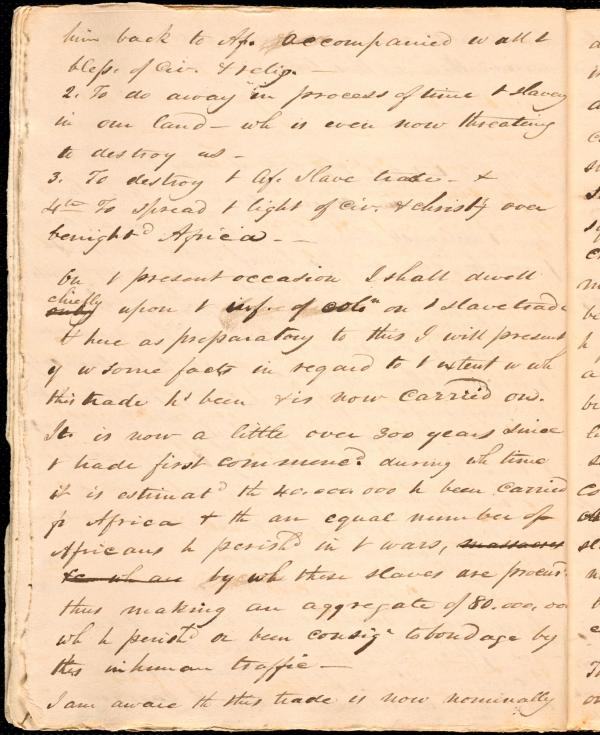 him back to Af. accompanied w all t
bless. of civ. & relig. —
2. To do away in process of time t slavery
in our land — wh is even now threating
to destroy us —
3. To destroy t Af. slave trade — &
4th To spread t light of civ. & christy over
benightd Africa — —
On t present occasion I shall dwell
chiefly
only upon t inf. of coln on t slave trade
& here as preparatory to this I will present
y w some facts in regard to t extent w wh
this trade hs been & is now carried on.
It is now a little over 300 years since
t trade first commencd during wh time
it is estimatd th 40.000.000 h been carried
fr Africa & th an equal number of
Africans h perishd in t wars, massacres
&c wh are by wh these slaves are procurd
thus making an aggregate of 80.000.000
wh h perishd or been consigd to bondage by
this inhuman traffic —
I am aware th this trade is now nominally